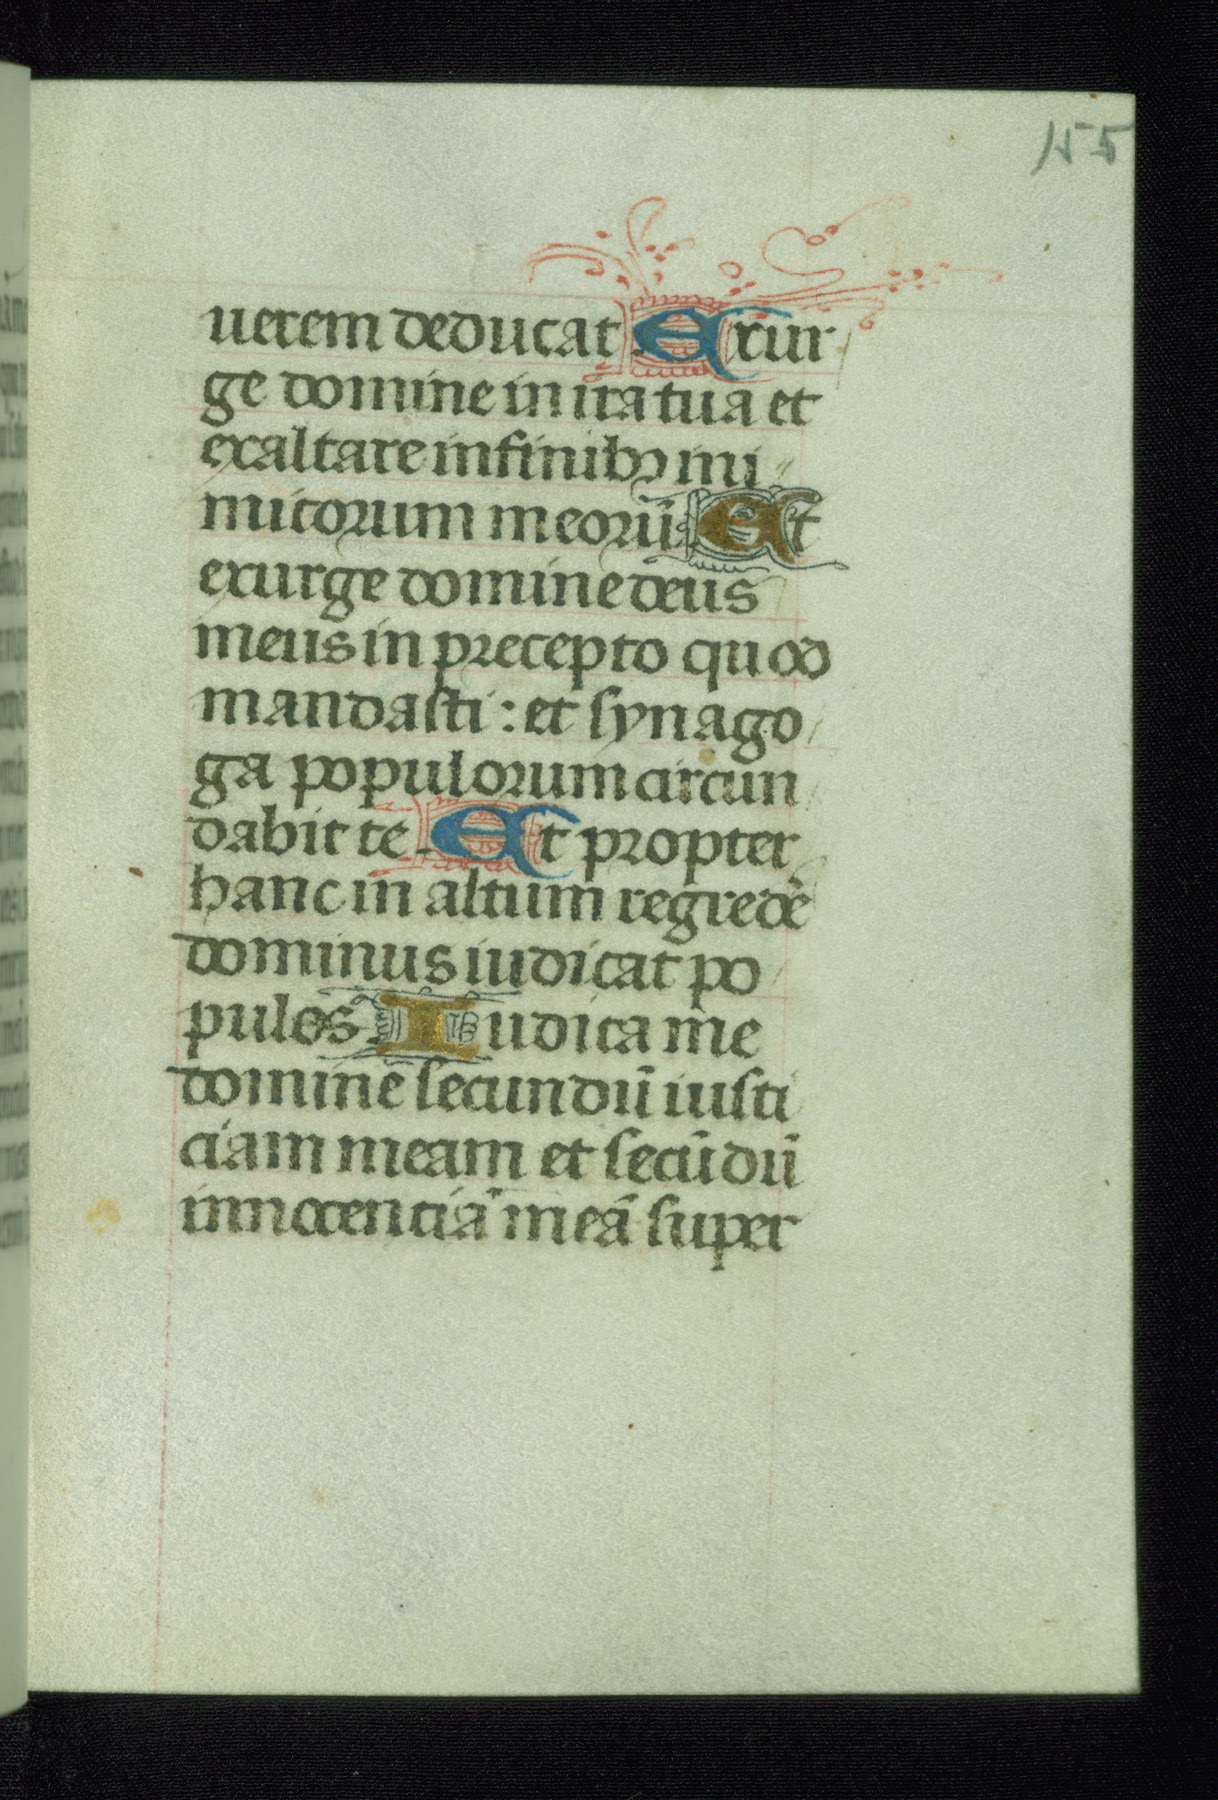 155
uerem deducat Exur
ge domine in ira tua et
exaltare in finibꝯ ini
micorum meorū Et
exurge domine deus
meus in precepto quod
mandasti : et synago
ga populorum circun
dabit te Et propter
hanc in altum regredē
dominus iudicat po
pulos Iudica me
domine secundū iusti
ciam meam et secūdū
innocenciā meā super